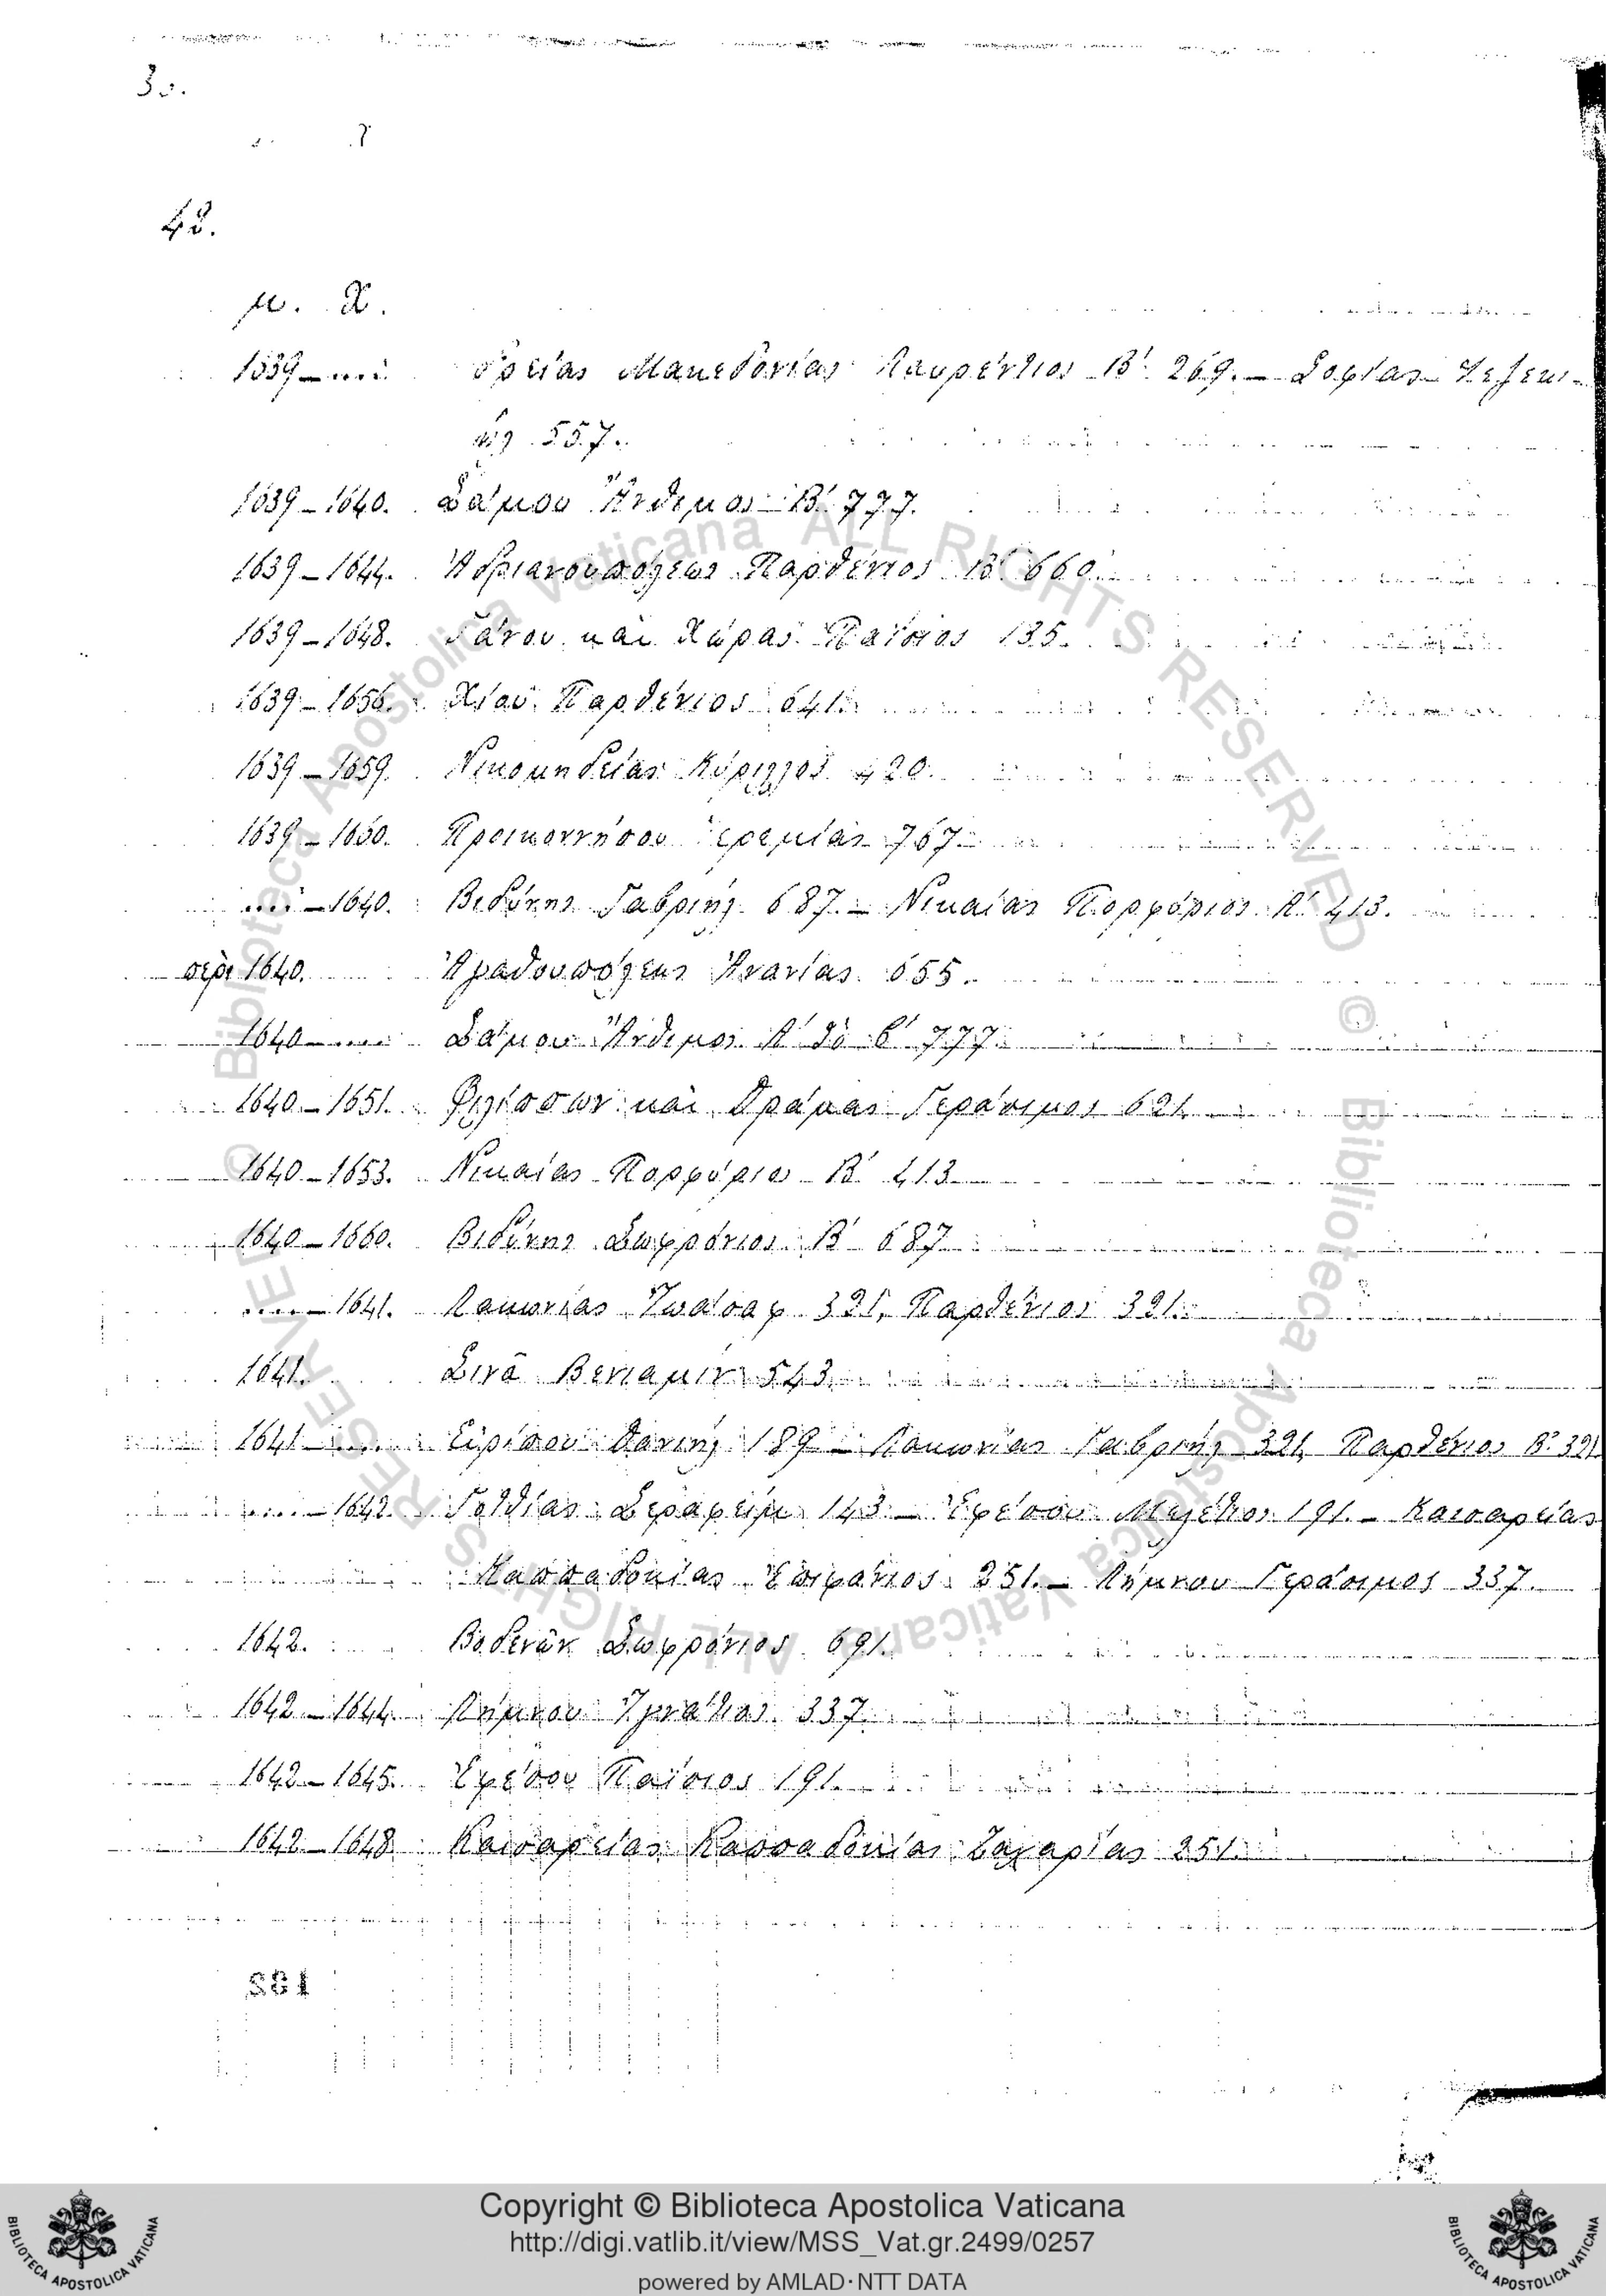 30.
48.
μ. Χ.
1639 – .... Γρείας Μακεδονίας Λαυρέντιος Β' 269. – Σοφίας Ἰεζεκι-
ήλ 557.
1639 – 1640. Σάμου Ἄνθιμος Β' 777.
1639 – 1644. Ἀδριανουπόλεως Παρθένιος Β' 660.
1639 – 1648. Γάνου καὶ Χώρας Παΐσιος 135.
1639 – 1656. Χίου Παρθένιος 641.
1639 – 1659. Νικομηδείας Κύριλλος 420.
1639 – 1660. Προικοννήσου Ἱερεμίας 767.
.... – 1640. Βιδύνης Γαβριὴλ 687. – Νικαίας Πορφύριος Α' 413.
περὶ 1640. Ἀγαθουπόλεως Ἀνανίας 655.
1640 – .... Σάμου Ἄνθιμος Α' τὸ β' 777.
1640 – 1651. Φιλίππων καὶ Δράμας Γεράσιμος 621.
1640 – 1653. Νικαίας Πορφύριος Β' 413
1640 – 1660. Βιδύνης Σωφρόνιος Β' 687
.... – 1641. Λακωνίας Ἰωάσαφ 321, Παρθένιος 321.
1641. Σινᾶ Βενιαμὶν 543.
1641 – .... Εὐρίπου Δανιὴλ 189 – Λακωνίας Γαβριὴλ 321, Παρθένιος Β' 321
.... – 1642. Γοτθίας Σεραφεὶμ 143 – Ἐφέσου Μελέτιος 191. – Καισαρείας
Καππαδοκίας Ἐπιφάνιος 251. – Λήμνου Γεράσιμος 337.
1642. Βοδενῶν Σωφρόνιος 691.
1642 – 1644. Λήμνου Ἰγνάτιος 337
1642 – 1645. Ἐφέσου Παΐσιος 191.
1642 – 1648 Καισαρείας Καππαδοκίας Ζαχαρίας 251.
Copyright © Biblioteca Apostolica Vaticana
http://digi.vatlib.it/view/MSS_Vat.gr.2499/0257
powered by AMLAD·NTT DATA